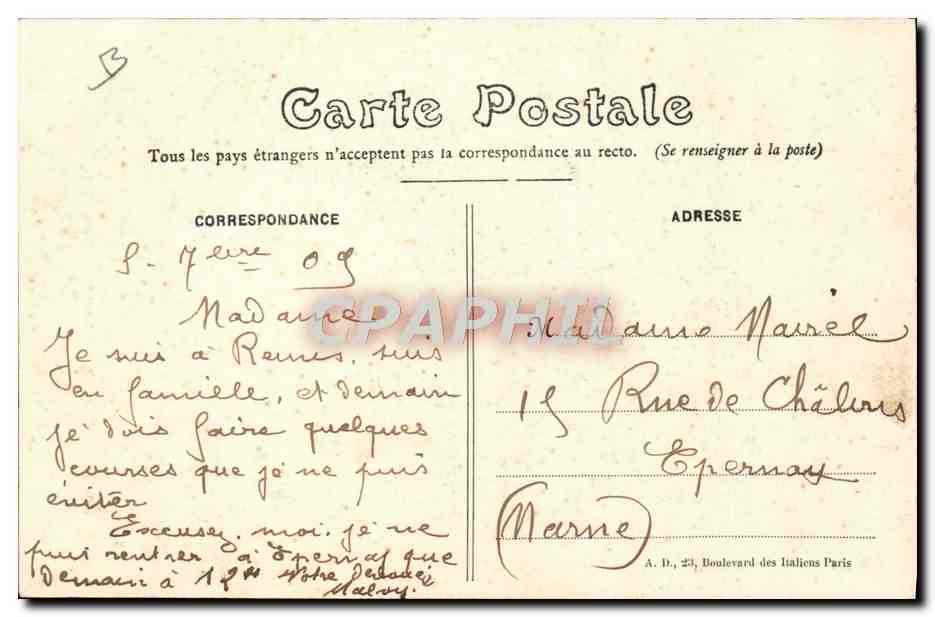 B
Carte Postale
Tous les pays étrangers n'acceptent pas la correspondance au recto. (Se renseigner à la poste)
CORRESPONDANCE
5 - 7bre 09
Madame
Je suis à Reims, suis
en famille, et demain
je dois faire quelques
courses que je ne puis
éviter
Excusez moi, je ne
puis rentrer à Epernay que
demain à 12H Votre
ADRESSE
Madame
15 Rue de Châlons
Epernay
(Marne)
A. D., 23, Boulevard des Italiens Paris
CPAPHIL